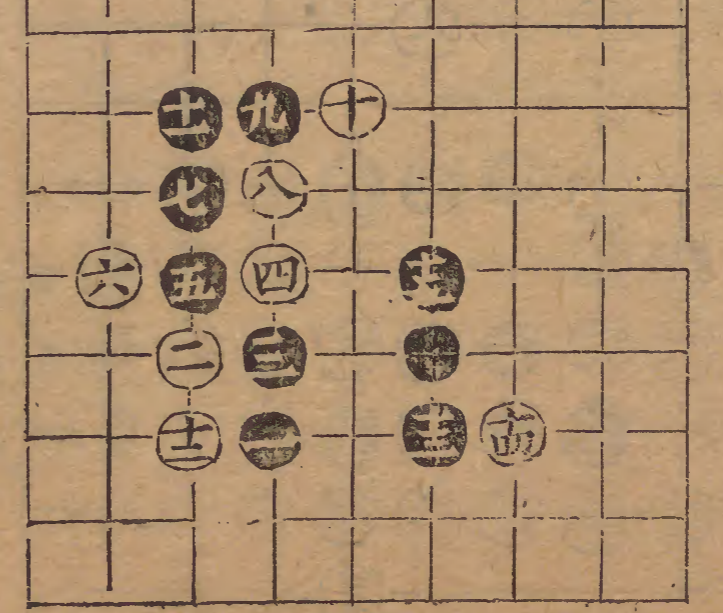 十一 九 十
七 八
六 五 四 十五
二 三
十二 一 十三 十四